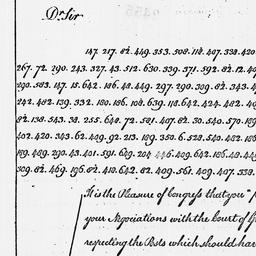 Dr Sir
147. 217. 82. 449. 353. 508. 118. 407. 338. 420.
267. 72. 290. 243. 327. 43. 512. 630. 339. 371. 592. 82. 12. 40
290. 583. 147. 15. 642. 186. 48. 449. 297. 290. 309. 82. 343. 4
242. 482. 139. 332. 180. 186. 108. 639. 118. 642. 424. 482. 40
82. 138. 543. 38. 255. 648. 72. 581. 407. 82. 30. 540. 570. 189
402. 420. 343. 62. 409. 92. 213. 189. 380. 6. 528. 540. 482. 186
189. 489. 290. 43. 401. 591. 629. 204. 446. 409. 642. 186. 48. 44
309. 82. 469. 196. 82. 410. 642. 82. 409. 561. 409. 407. 338.
It is the Pleasure of Congress that you
your Negociations with the Court of
respecting the Posts which should ha